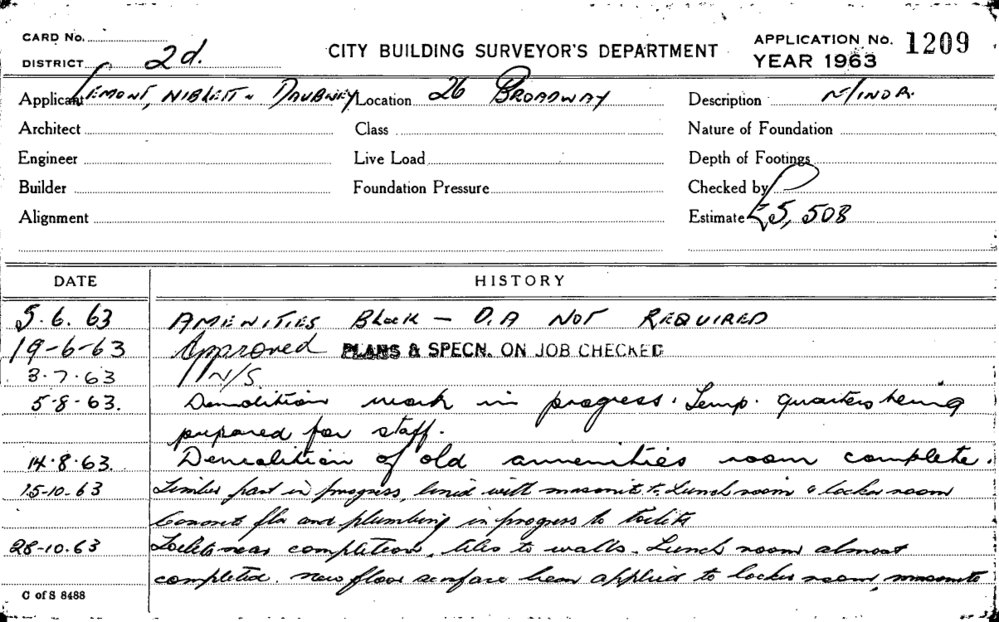 CARD No.
DISTRICT 2d.
CITY BUILDING SURVEYOR'S DEPARTMENT
APPLICATION No. 1209
YEAR 1963
Applicant LEMONT, NIBLETT & DAUBNEY Location 26 BROADWAY Description
Architect Class Nature of Foundation
Engineer Live Load Depth of Footings
Builder Foundation Pressure Checked by
Alignment Estimate £5,508
DATE HISTORY
5.6.63 AMENITIES Block — D.A NOT REQUIRED
19-6-63 Approved PLANS & SPECN. ON JOB CHECKED
3.7.63 N/S.
5-8-63. Demolition work in progress. Temp. quarters being
prepared for staff.
14.8.63. Demolition of old amenities room complete.
15-10.63 Timber part in progress, lined with masonite to Lunch room & locker room
Concrete flr and plumbing in progress to toilets
28-10.63 Toilets near completion, tiles to walls. Lunch room almost
completed. new floor surface been applied to locker room, masonite
C of S 8488